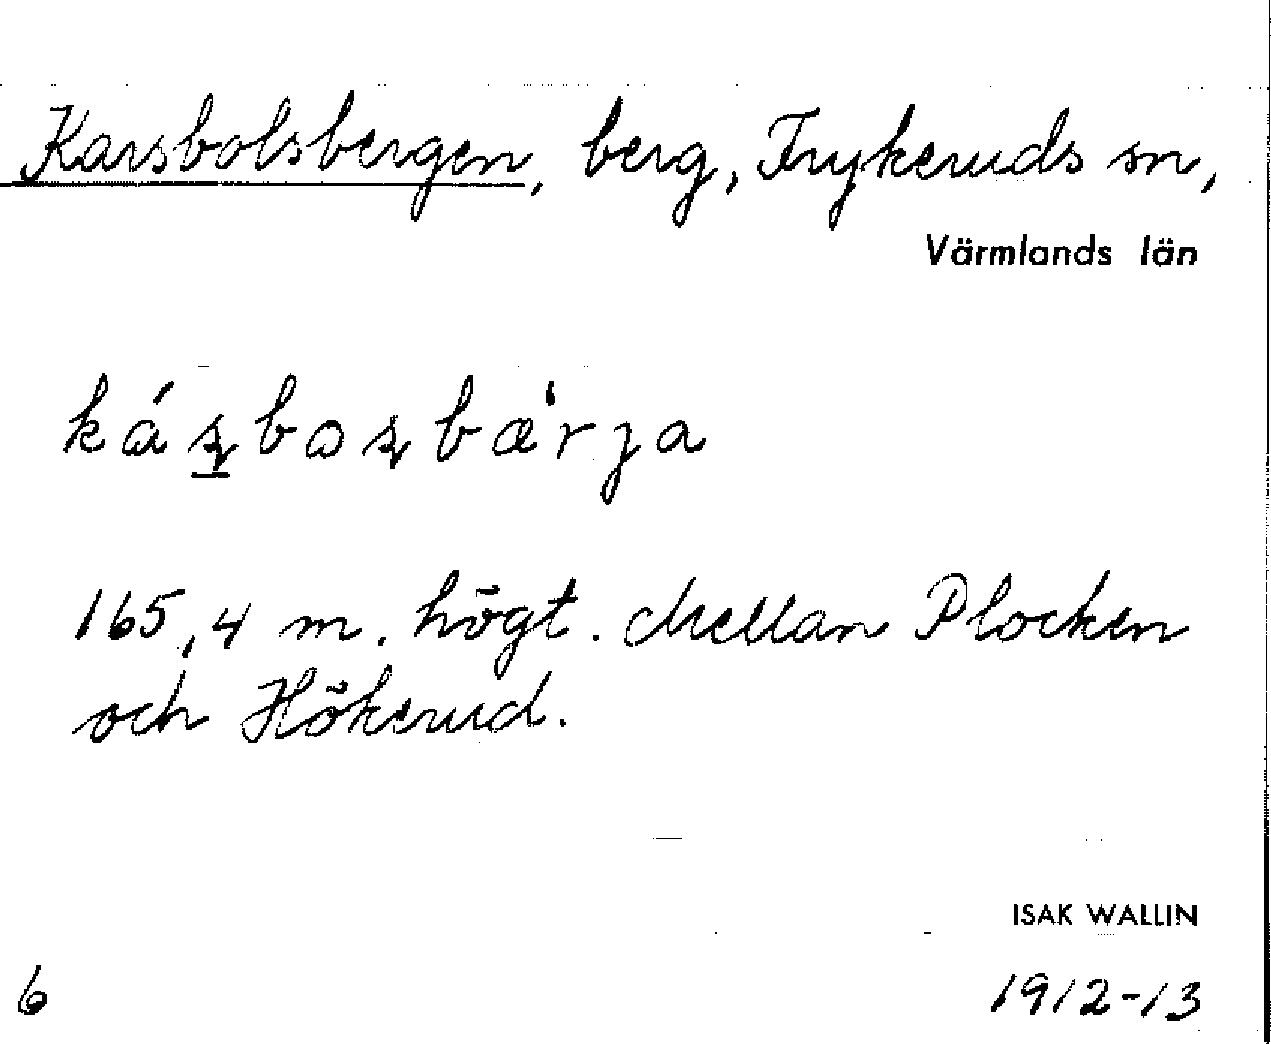 Karsbolsbergen, berg, Frykeruds sn,
Värmlands län
káʂbosʂbæ̀rja
165,4 m. högt. Mellan Plocken
och Hökerud.
ISAK WALLIN
6 1912-13